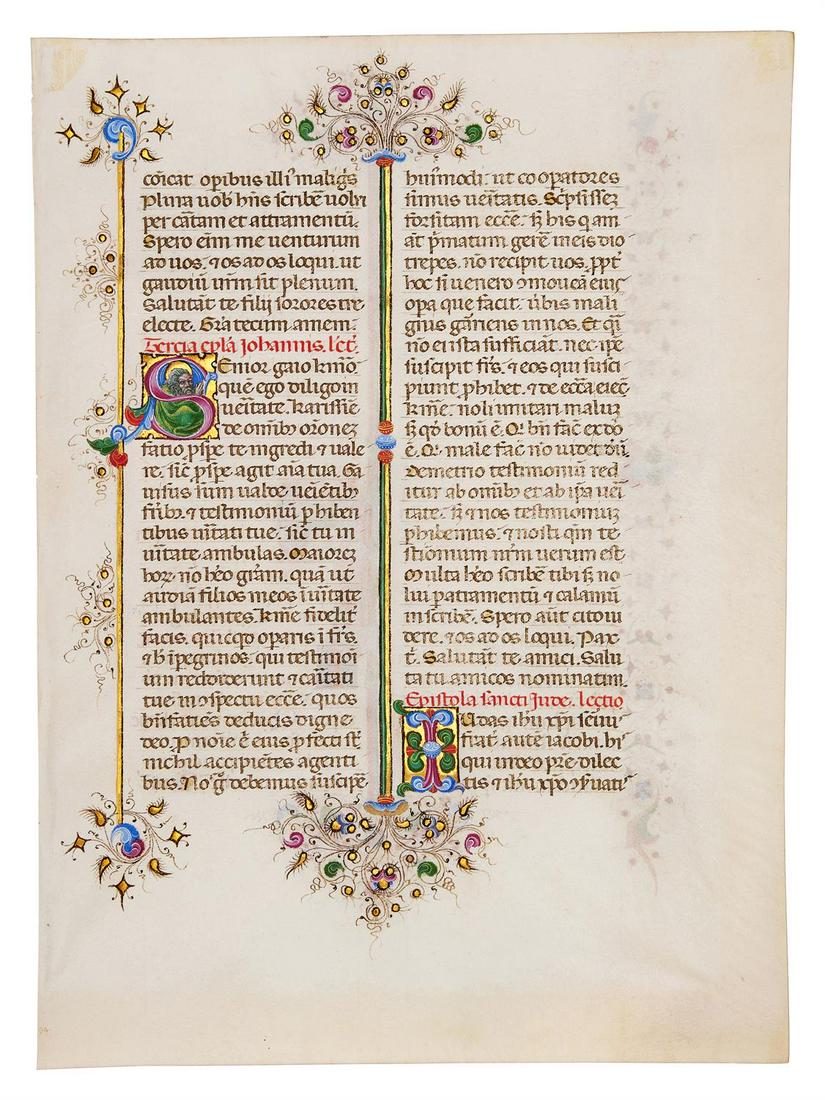 cōicat opibus illiꝰ maligs
Plura uob hñs scribēe uolui
per cartam et attramentū.
Spero eim me venturum
ad uos. ⁊ os ad os loqui. ut
gaudiū urm sit plenum.
Salutāt te filij sorores tre
electe. Gr̄a tecum amem.
Tercia epl̄a Johannis. lect̄.
Senior gaio kmō
quē ego diligo in
ueītate. karissīe
de omīb oronez
fatio p̱spe te īngredi ⁊ uale
re. sic̄ p̱spe agit aīa tua. Ga
uisus sum ualde ueīetib
fr̄ib ⁊ testimoniū p̱hiben
tibus uītati tue. sic̄ tu in
uītate ambulas. Maiorez
hoꝝ. nō hēo gram. quā ut
audiā filios meos ī uītate
ambulantes. kmē fidelit̄
facis. quicqd oparis ī fr̄s.
⁊ h̄ ī pegrinos. qui testimōi
um reddiderunt ⁊ caritati
tue in ꝯspectu ecc̄e. quos
bn̄fatiēs deducis digne
deo. P̱ noīe ē eius p̱fecti st̄
nichil accipiētes a gentī
bus. Nos g̊ debemus suscipē
huīmodi. ut cooperatores
simus ueītatis. Sc̄psissez
forsitam ecc̄e. sꝫ his q am
āt p̄matum gerē ī eis dio
trepes. nō recipit uos. ppt̄
hoc si uenero ꝯmoueā eiꝰ
opa que facit. ūbis mali
gius garriens in nos. Et qī
nō ei ista sufficiāt. nec ipe
suscipit fr̄s. ⁊ eos qui susci
piunt p̱hibet. ⁊ de ecc̄a eiec̄.
kmē. noli imitari malūz
sꝫ qd̊ bonū ē. Qi bn̄ fac̄ ex dō
ē. Qi male fac̄ nō uidet dm̄.
Demetrio testimoniū red
itur ab omīb et ab ip̄a ueī
tate. sꝫ ⁊ nos testimoniūz
p̱hibemus. ⁊ nosti qm̄ te
stiōnium nrm̄ uerum est
Multa hēo scribēe tibi sꝫ no
lui p̱ atramentū ⁊ calamū
īn scribēe. Spero aūt cito ui
dere. ⁊ os ad os loqui. Pax
t̄. Salutāt te amici. Salu
ta tu amicos nominatim.
Epistola sancti Jude. lectio
Iudas ihū xp̄i seruī
frat̄ autē iacobi. hi
qui in deo p̄re dilec
tis ⁊ ihū xpo ꝯsuati